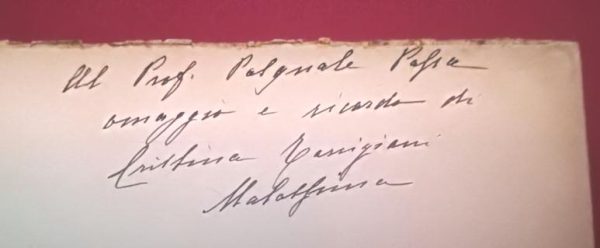 Al Prof. Pasquale Papa
omaggio e ricordo di
Cristina Torrigiani
Malaspina